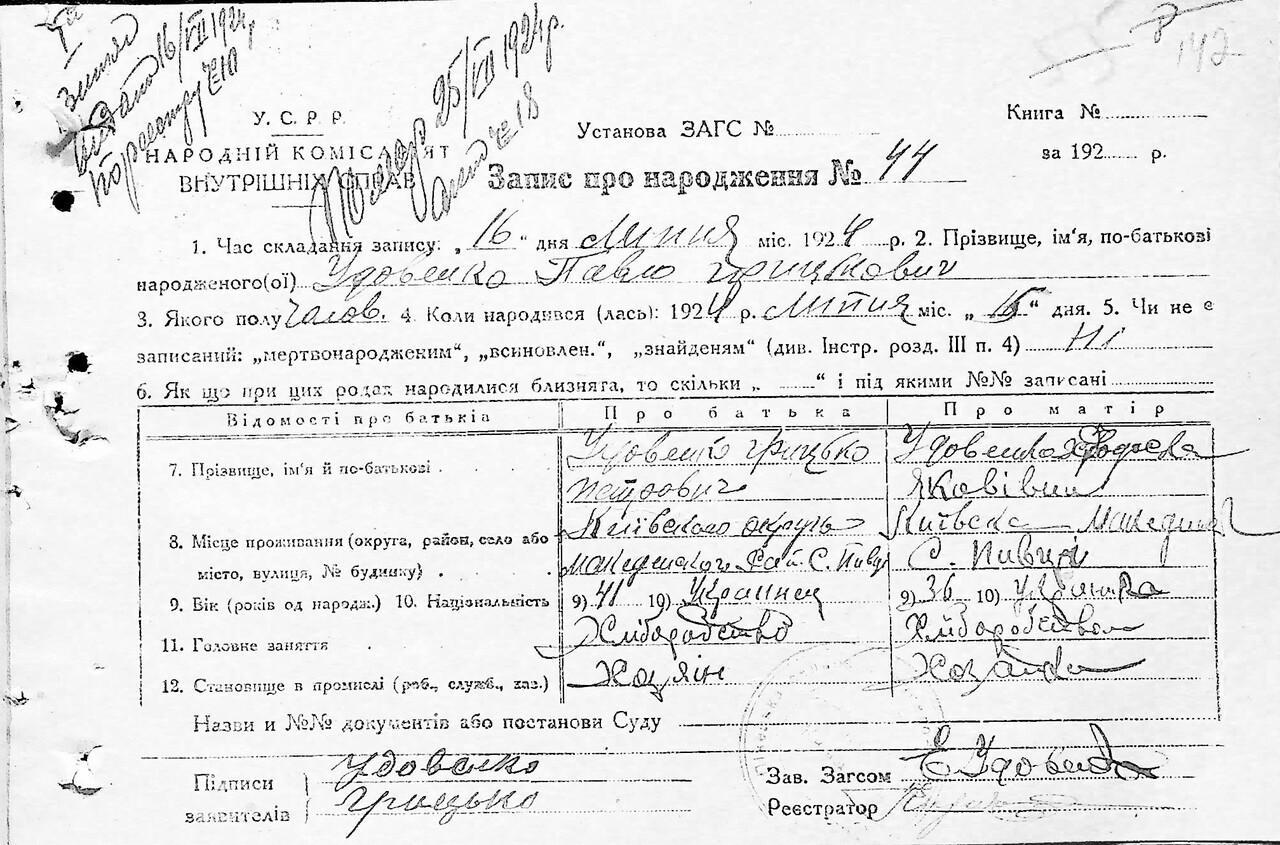 16/VII 1924 р.
по реєстру № 10
25/VII 1924 р.
№ 18
142
У. С. Р. Р.
НАРОДНІЙ КОМІСАРІЯТ
ВНУТРІШНІХ СПРАВ
Установа ЗАГС №
Книга №
за 192 р.
Запис про народження № 44
1. Час складання запису: „ 16 “ дня Липня міс. 1924 р. 2. Прізвище, ім'я, по-батькові
народженого(ої) Удовенко Павло Грицькович
3. Якого полу Чолов. 4. Коли народився (лась): 1924 р. Липня міс. „ 15 “ дня. 5. Чи не є
записаний: „мертвонародженим“, „всиновлен.“, „знайденям“ (див. Інстр. розд. III п. 4) Ні
6. Як що при цих родах народилися близнята, то скільки „ “ і під якими №№ записані
Відомості про батьків Про батька Про матір
7. Прізвище, ім'я й по-батькові Удовенко Грицько Удовенко
Петрович Яковівна
8. Місце проживання (округа, район, село або Київського округу Київска
місто, вулиця, № будинку) С. Пивці С. Пивці
9. Вік (років од народж.) 10. Національність 9) 41 10) Українец 9) 36 10) Українка
11. Головне заняття Хліборобство Хліборобством
12. Становище в промислі (роб., служб., хаз.) Хозяін Хозяйка
Назви и №№ документів або постанови Суду
Підписи Удовенко
заявителів Грицько
Зав. Загсом Е Удовенко
Реєстратор